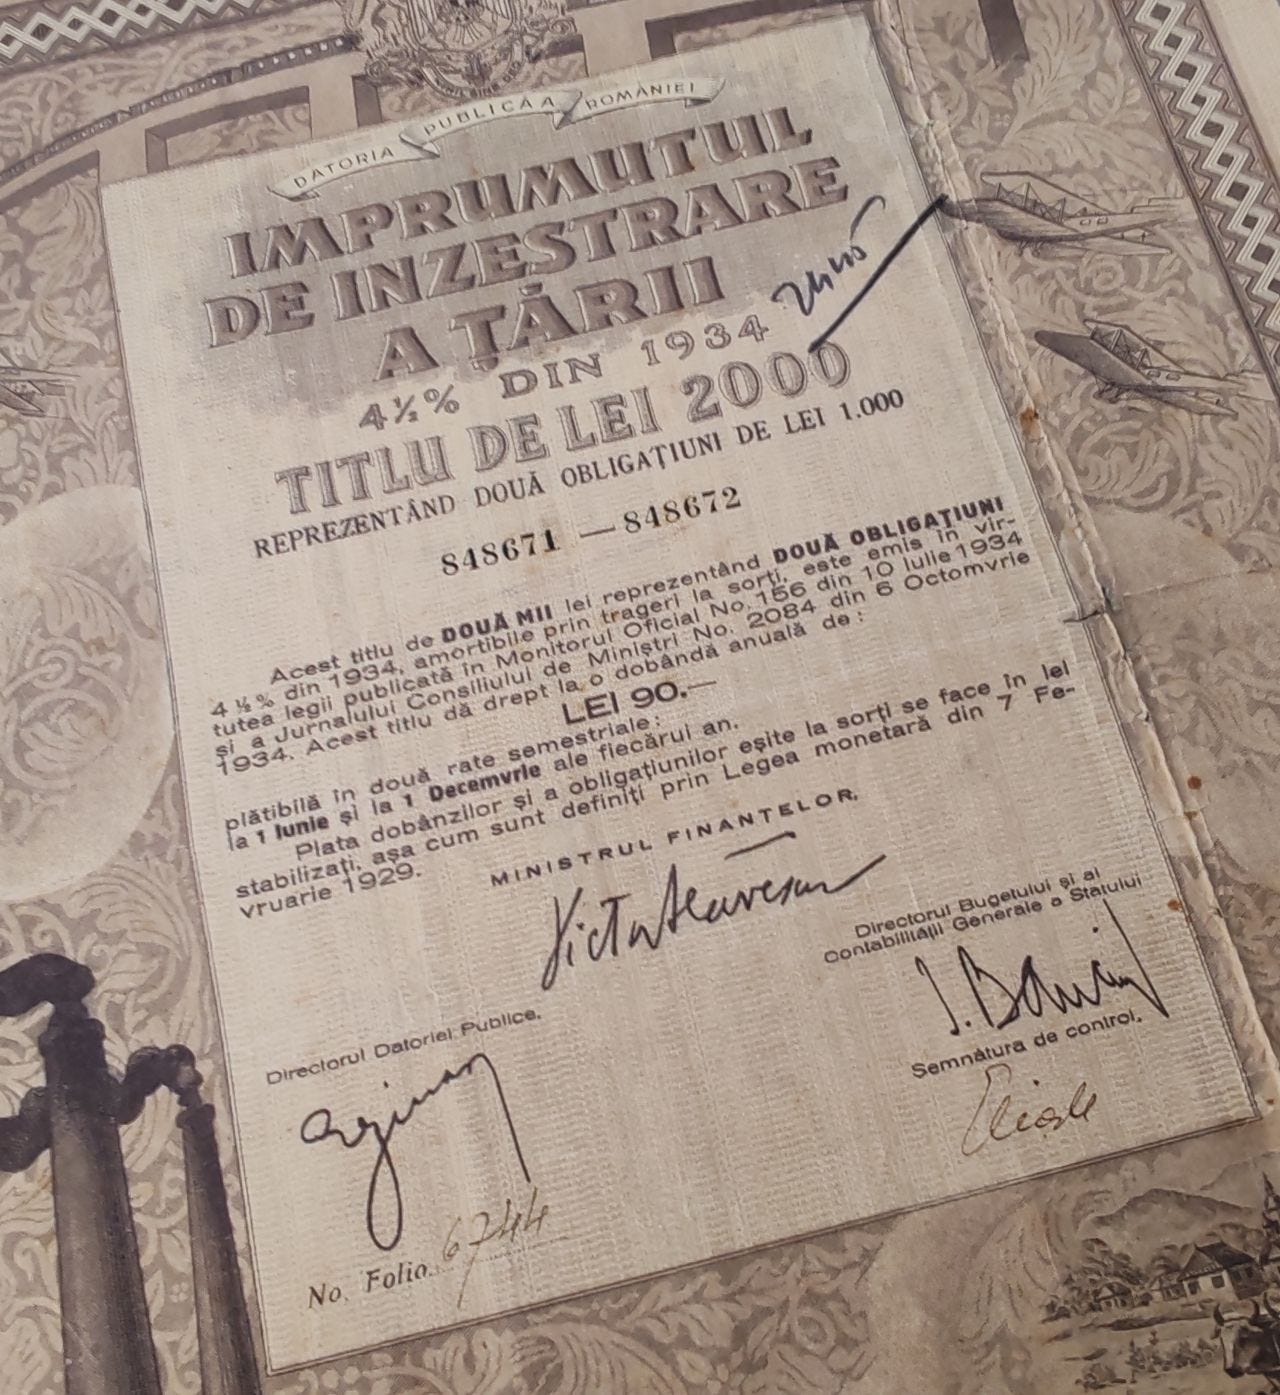 DATORIA PUBLICĂ A ROMÂNIEI
IMPRUMUTUL
DE INZESTRARE
A ȚĂRII
4½% DIN 1934
TITLU DE LEI 2000
REPREZENTÂND DOUĂ OBLIGAȚIUNI DE LEI 1.000
848671 — 848672
Acest titlu de DOUĂ MII lei reprezentând DOUĂ OBLIGAȚIUNI
4½% din 1934, amortibile prin trageri la sorți, este emis în vir-
tutea legii publicată în Monitorul Oficial No. 156 din 10 Iulie 1934
și a Jurnalului Consiliului de Miniștri No. 2084 din 6 Octomvrie
1934. Acest titlu dă drept la o dobândă anuală de:
LEI 90.—
plătibilă în două rate semestriale:
la 1 Iunie și la 1 Decemvrie ale fiecărui an.
Plata dobânzilor și a obligațiunilor eșite la sorți se face în lei
stabilizați, așa cum sunt definiți prin Legea monetară din 7 Fe-
vruarie 1929.
MINISTRUL FINANȚELOR,
Victor Slavescu
Directorul Bugetului și al
Contabilității Generale a Statului
Directorul Datoriei Publice,
Semnătura de control,
No. Folio 6744